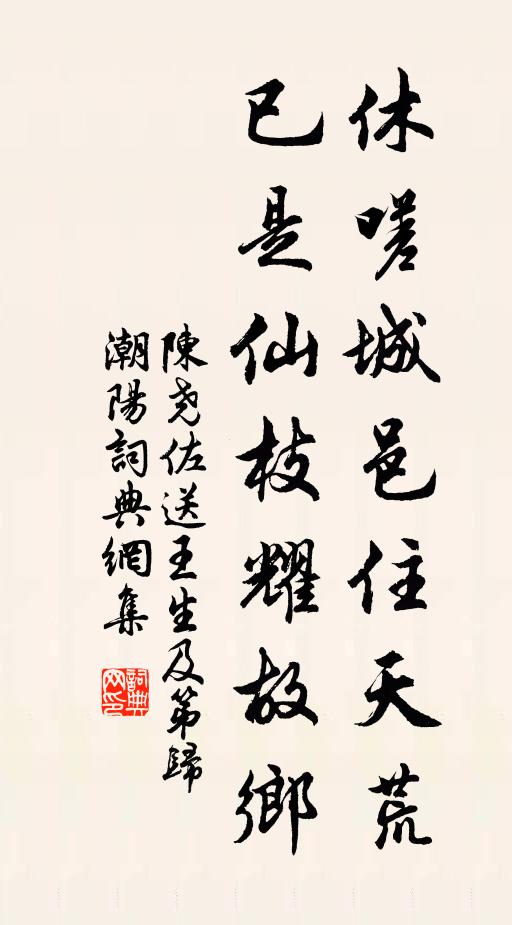 休嗟城邑住天荒
已是仙枝耀故鄉
陳尧佐送王生及第歸
潮陽詞典網集
詞典网印